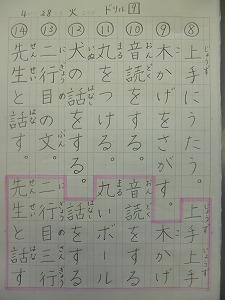 4 28 火 ドリル9
⑧上手にうたう。上手上手
⑨木かげをさがす。木かげ
⑩音読をする。音読
⑪丸をつける。丸いボール
⑫犬の話をする。話
⑬二行の文。二行目三行
⑭先生と話す。先生と話す